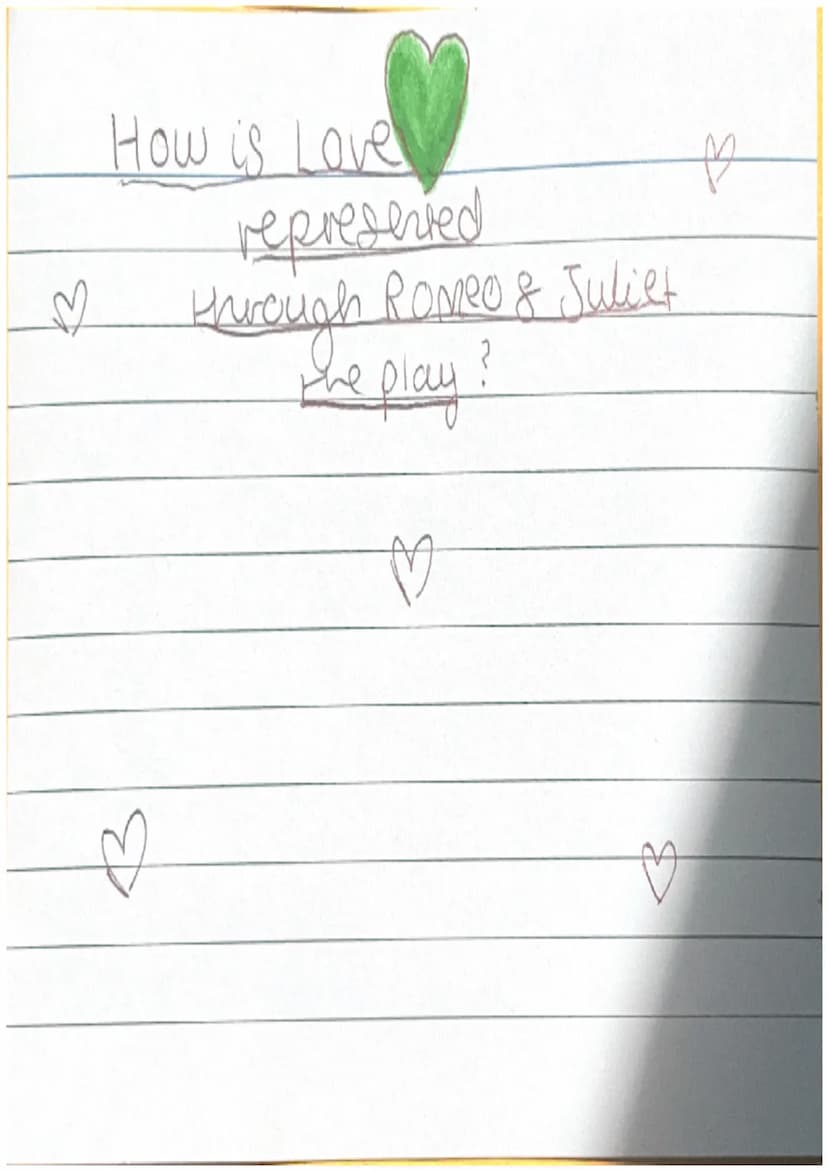 How is Love
represented
through Romeo & Juliet
the play?